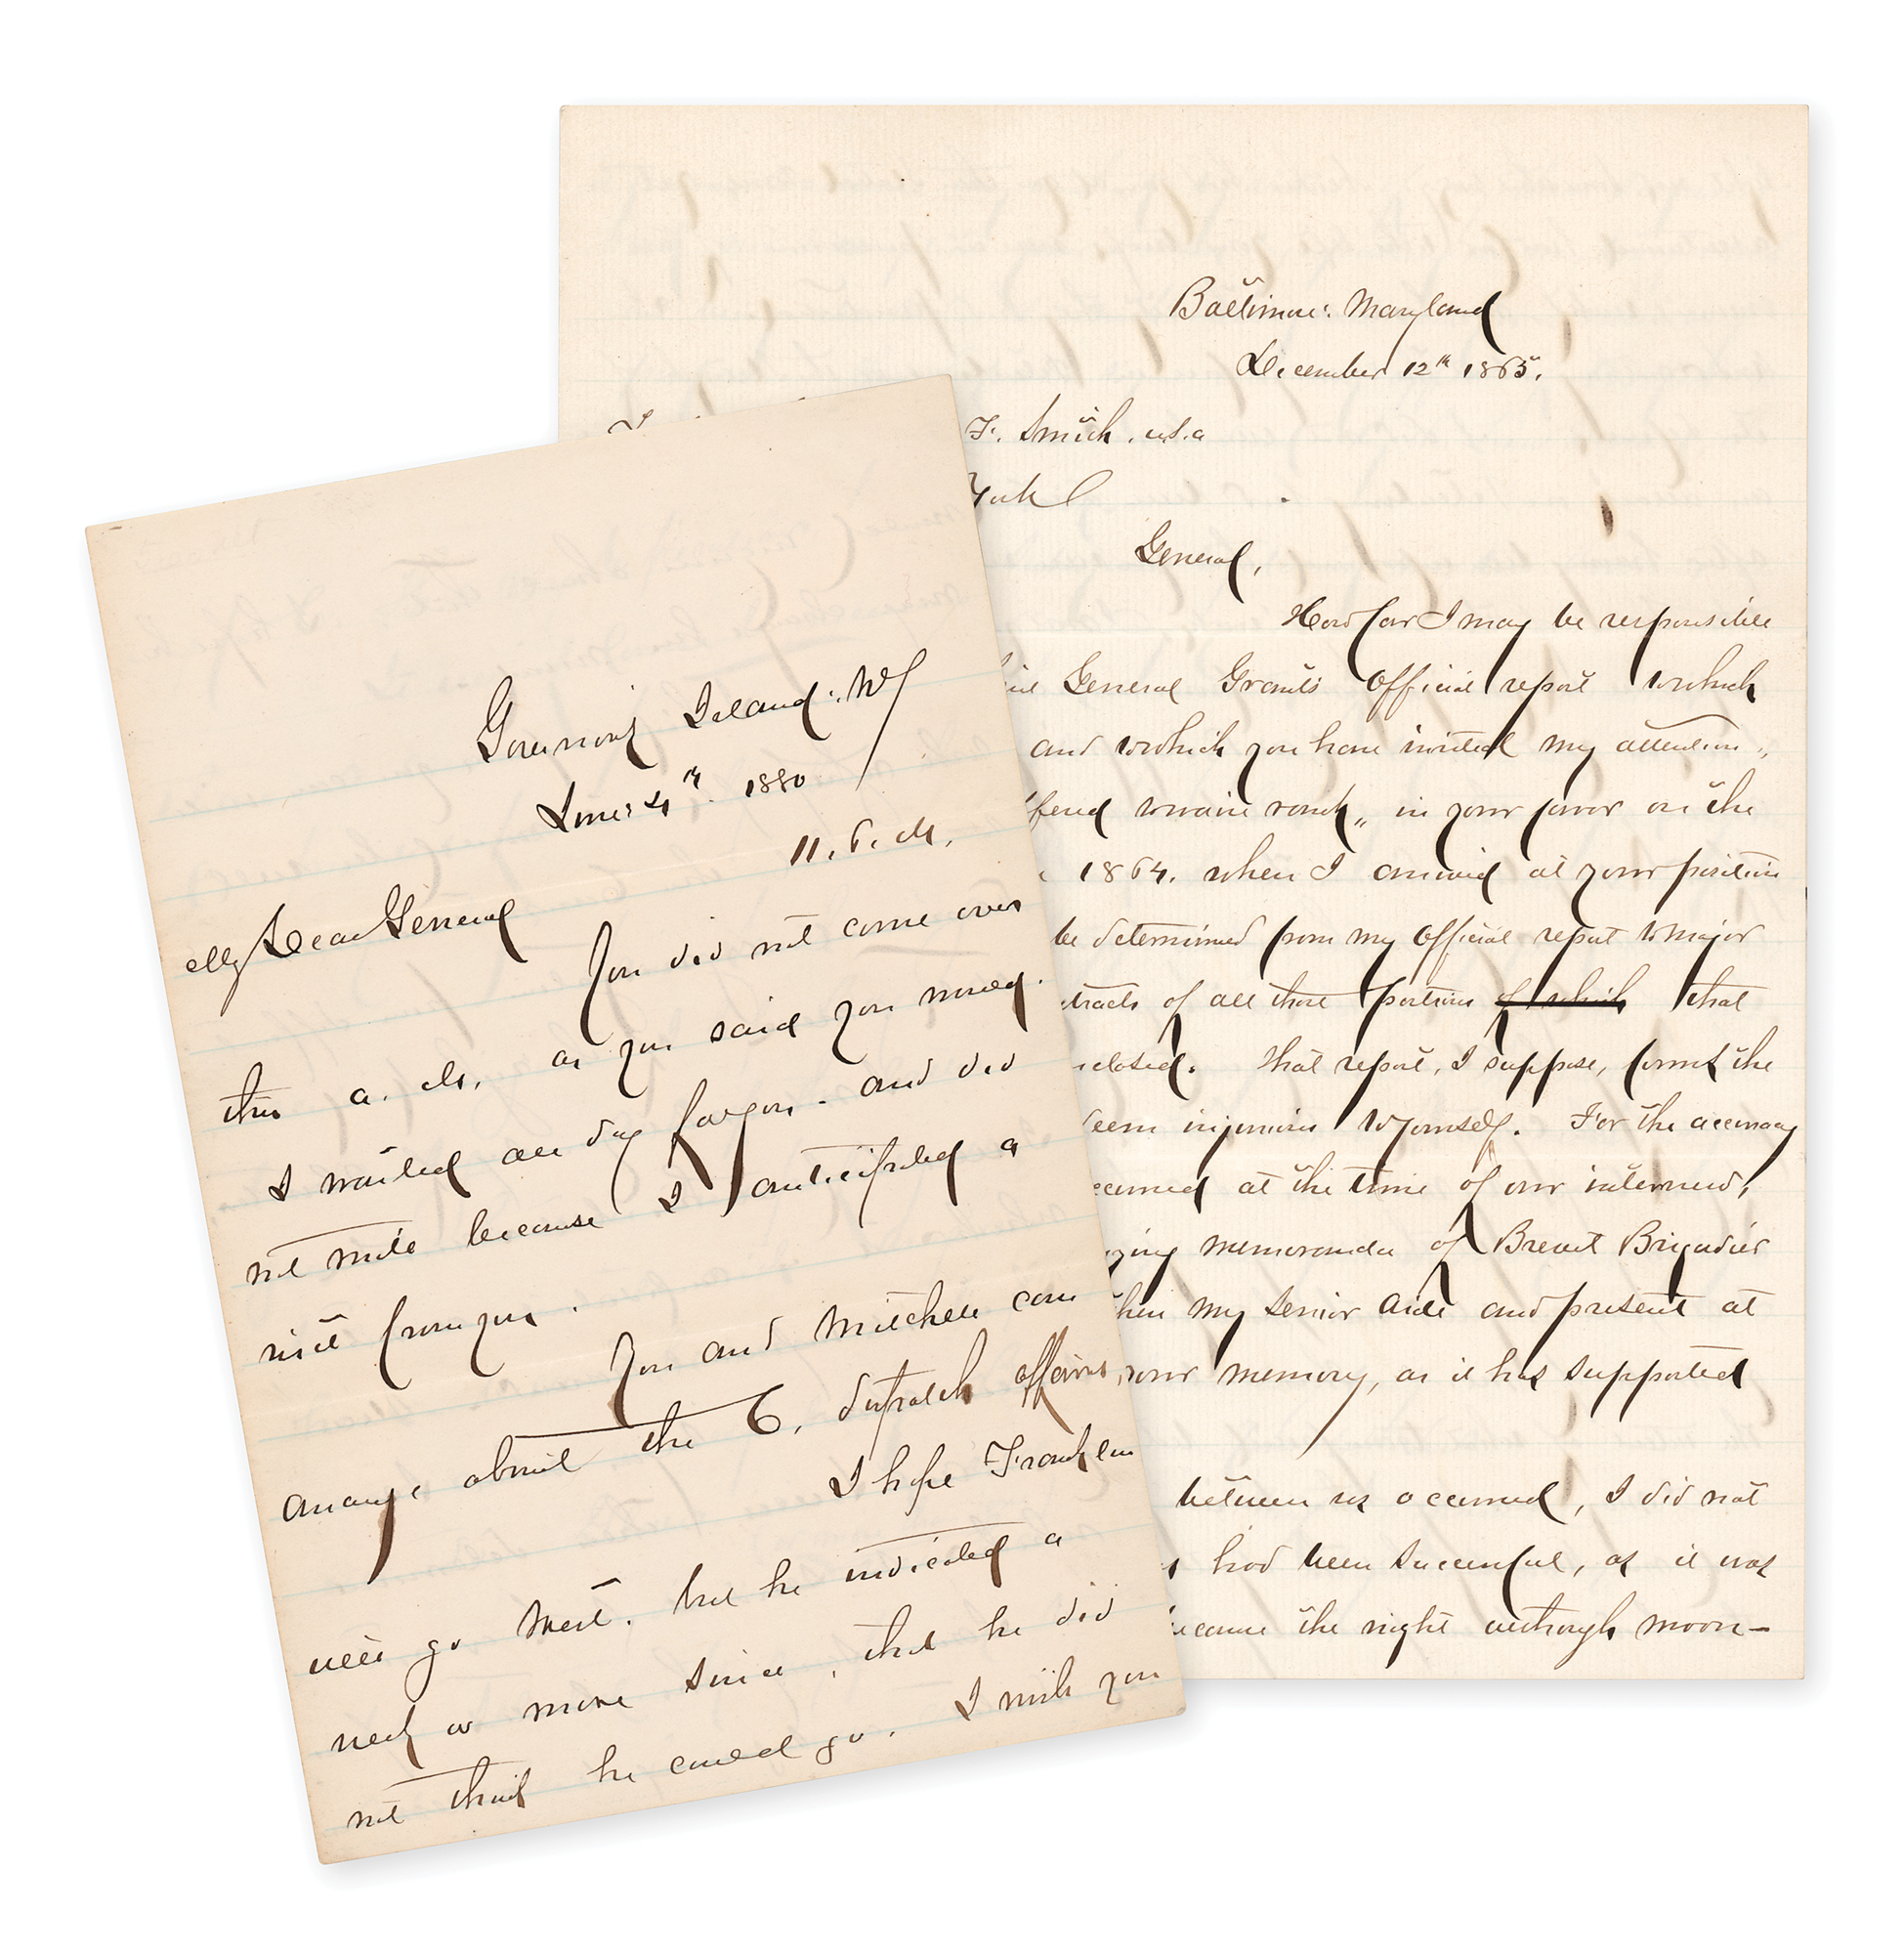 Governor's Island: NY
June: 4th. 1880
11. P. M.
My Dear General
You did not come over
this a. M. as you said you would.
I waited all day for you. and did
not write because I anticipated a
visit from you.
You and Mitchell can
arrange about the C. dispatch affairs
I hope Franklin
will go West. but he indicated a
week or more since, that he did
not think he could go. I wish you
Baltimore: Maryland
December 12th 1865.
F. Smith. U.S.A
York
General,
How far I may be responsible
General Grant's Official report which
and which you have invited my attention,
waive rank" in your favor on the
1864. when I arrived at your position
be determined from my Official report to Major
of all those portions of which that
That report, I suppose, forms the
injurious to yourself. For the accuracy
at the time of our interview,
memoranda of Brevet Brigadier
my Senior Aide and present at
your memory, as it has supported
between us occurred, I did not
had been successful, as it was
the night although moon-